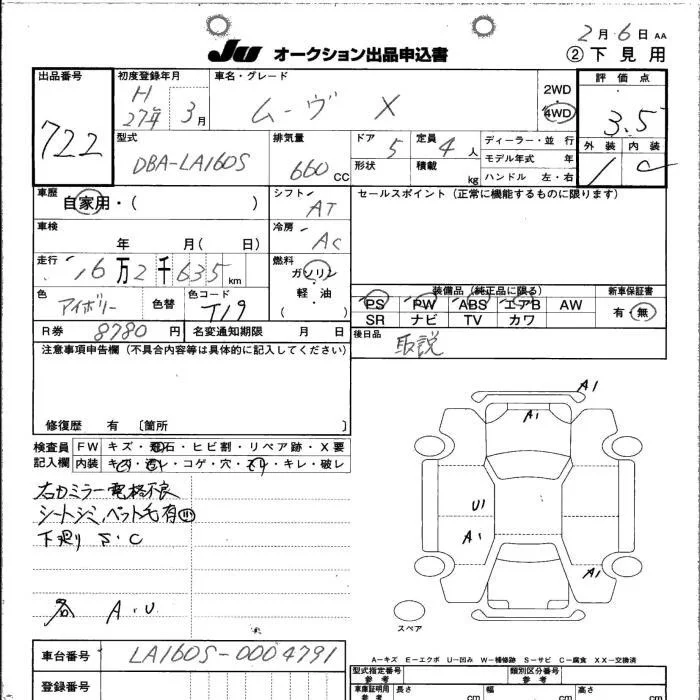 2月6日 AA
JU オークション出品申込書
②下見用
出品番号
722
初度登録年月
H 27年 3月
車名・グレード
ムーヴ X
2WD
4WD
評価点
3.5
外装 内装
1 C
型式
DBA-LA160S
排気量
660 CC
ドア 5
形状
定員 4人
積載 kg
ディーラー・並行
モデル年式 年
ハンドル 左・右
車歴
自家用・( )
シフト AT
セールスポイント(正常に機能するものに限ります)
車検
年 月( 日)
冷房 AC
走行
16万2千635km
燃料
ガソリン
軽・油
( )
色
アイボリー
色替
色コード
T19
装備品(純正品に限る)
PS PW ABS エアB AW
SR ナビ TV カワ
新車保証書
有・無
R券 8780円
名変通知期限 月 日
後日品
取説
注意事項申告欄(不具合内容等は具体的に記入してください)
修復歴 有 [箇所 ]
検査員記入欄
FW キズ・飛石・ヒビ割・リペア跡・X要
内装 キズ・汚れ・コゲ・穴・スリ・キレ・破レ
右カミラー電格不良
シートシミ,ペット毛有
下廻り S・C
各 A.U
A1
A1
U1
A1
A1
スペア
A-キズ E-エクボ U-凹み W-補修跡 S-サビ C-腐食 XX-交換済
車台番号
LA160S-0004791
登録番号
型式指定番号
参考
類別区分番号
参考
車庫証明用
参考
長さ cm
幅 cm
高さ cm